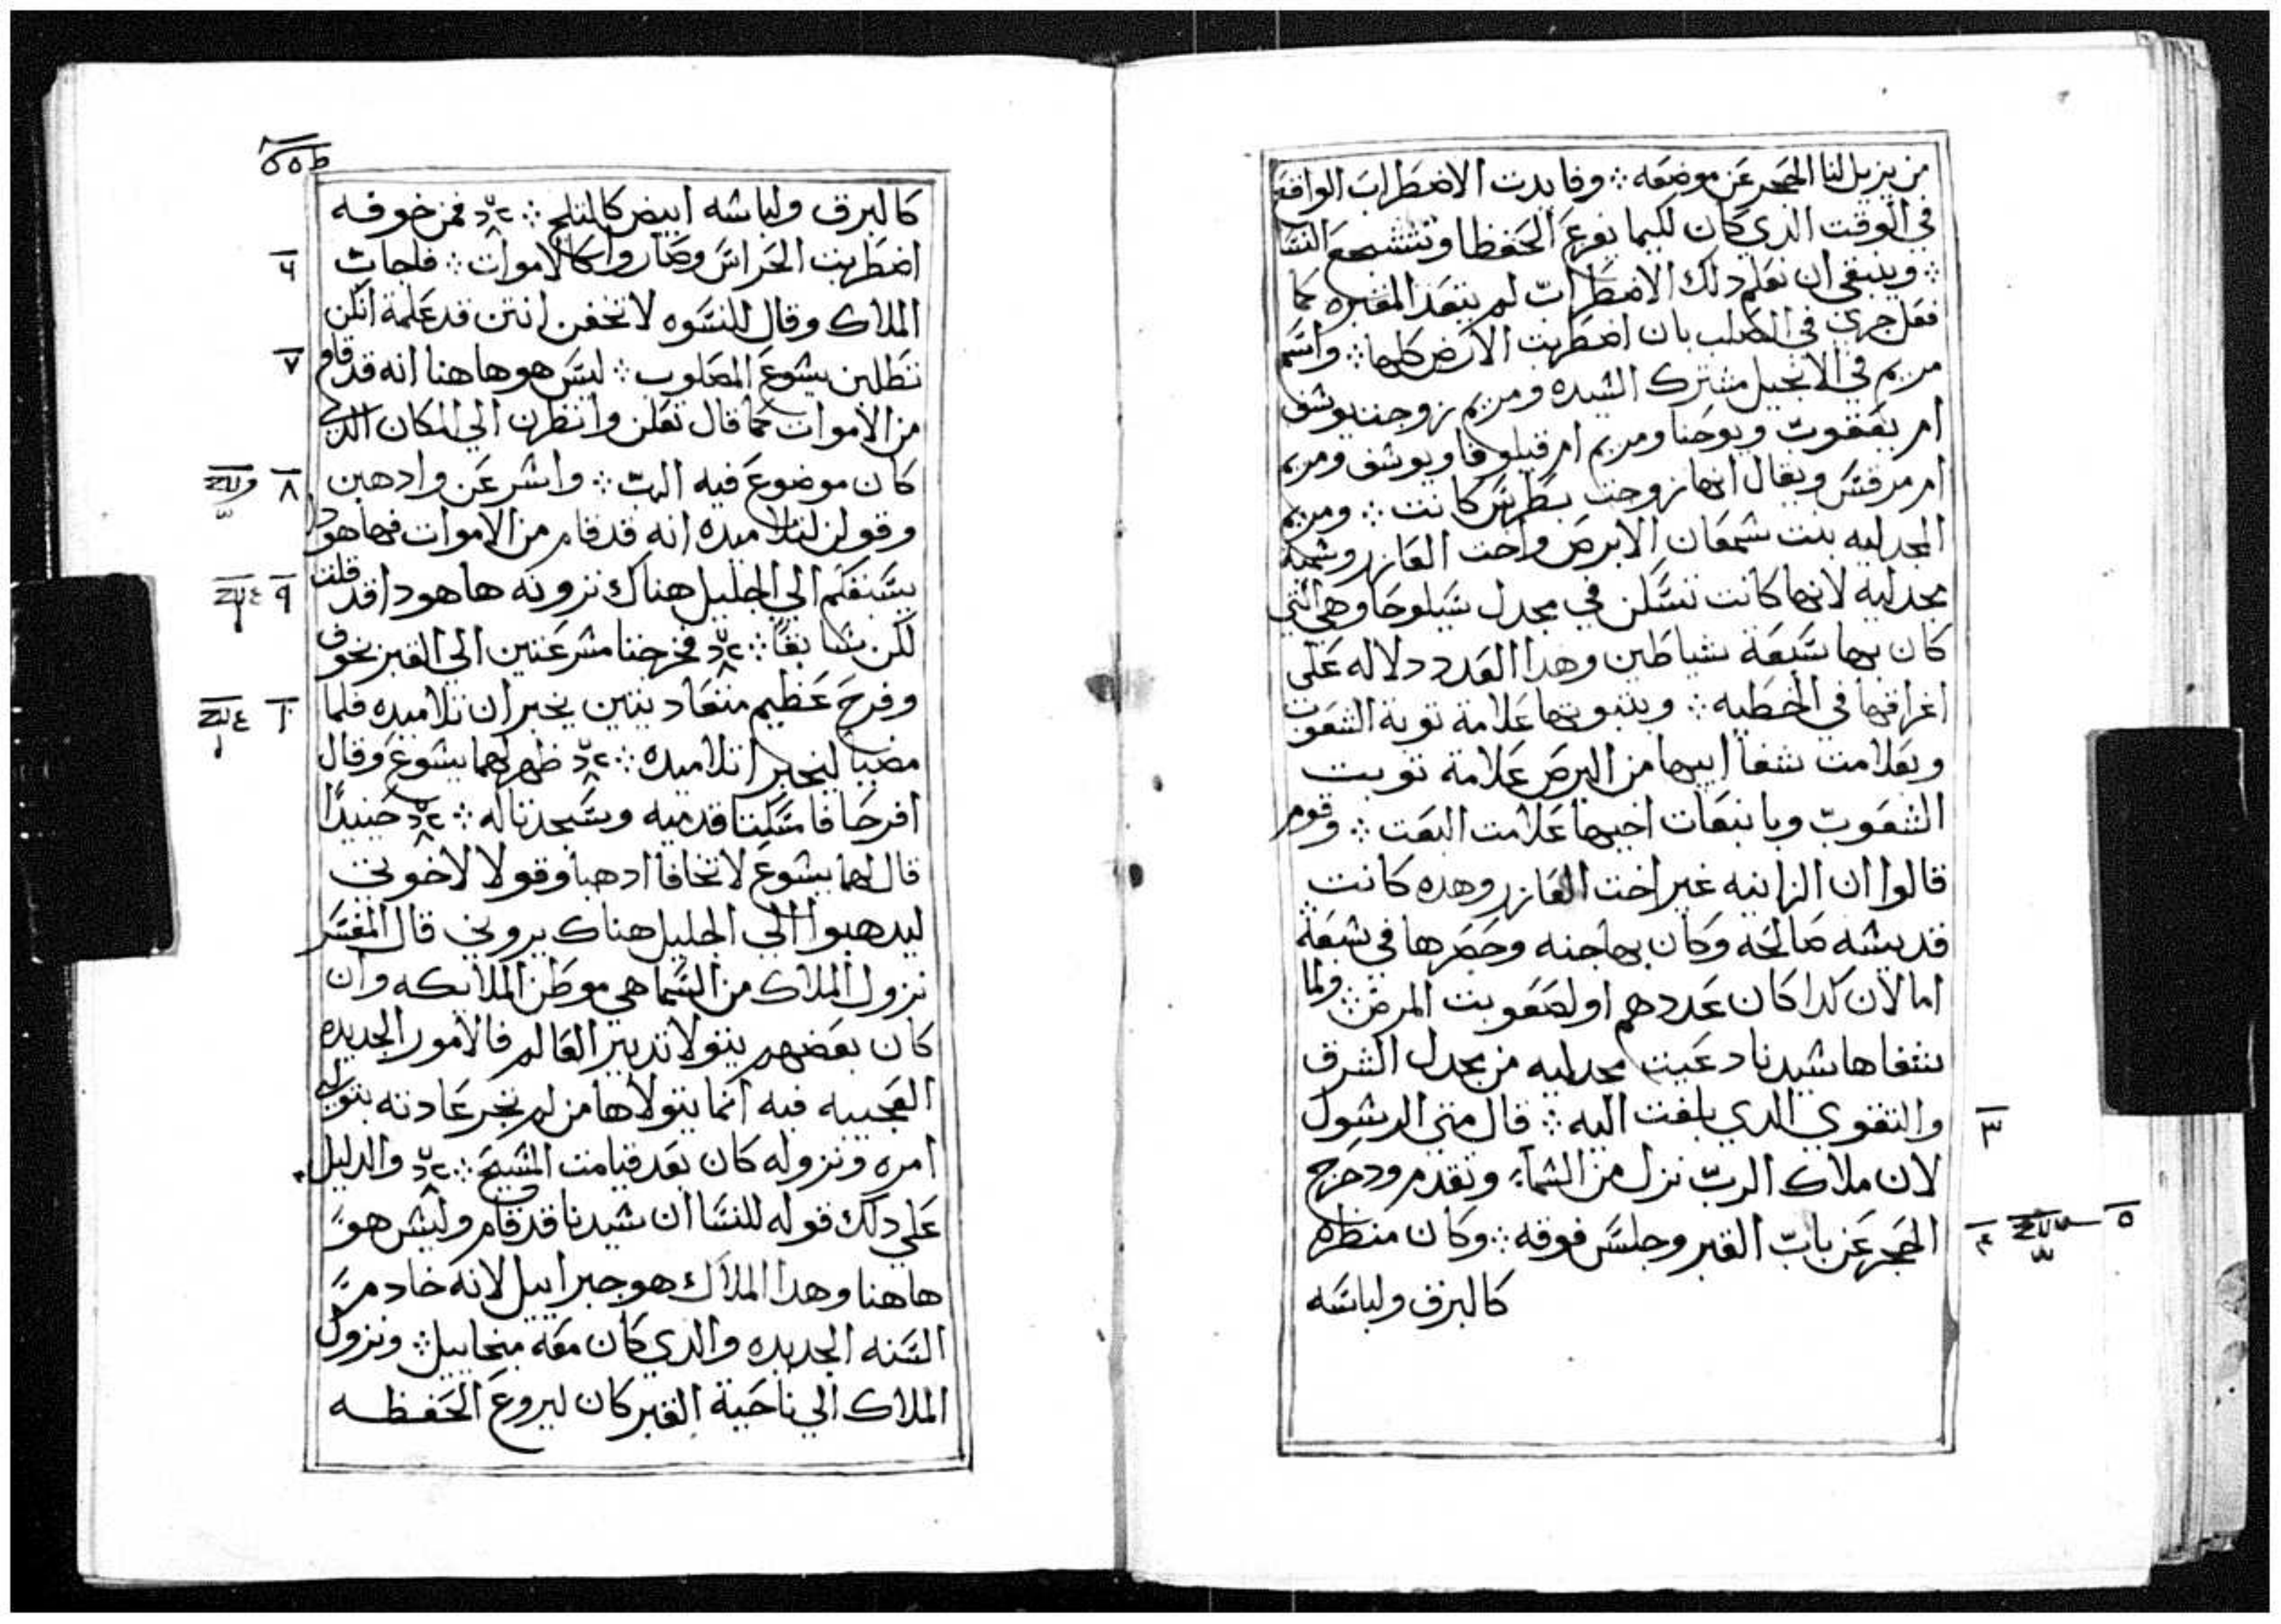 من يزيل لنا الحجر عن موضعه ⁘ وفايدت الاضطراب الواقع
في الوقت الدي كان لكيما يفزع الحفظا وتتشجع النسا
⁘ وينبغي ان نعلم دلك الاضطراب لم يتعد المقبره كما
فعل جري في الصلب بان اضطربت الارض كلها ⁘ واسم
مريم في الانجيل مشترك السيده ومريم زوجت يوسف
ام يعقوب ويوحنا ومريم ام قيلوفا ويوسف ومريم
ام مرقس ويقال انها زوجت بطرس كانت ⁘ ومريم
المجدليه بنت شمعان الابرص واخت العازر وسميت
مجدليه لانها كانت تسكن في مجدل سيلوحا وهي التي
كان بها سبعة شياطين وهدا العدد دلاله علي
اغراقها في الخطيه ⁘ وبتوبتها علامة توبة الشعوب
وبعلامت شفا ابيها من البرص علامة توبت
الشعوب وبانبعات اخيها علامت البعت ⁘ وقوم
قالوا ان الزانيه غير اخت العازر وهده كانت
قديسه صالحه وكان بها جنه وحصرها في سبعة
اما لان كدا كان عددهم او لصعوبت المرض ⁘ ولما
شفاها سيدنا دعيت مجدليه من مجدل الشرف
والتقوي الدي بلغت اليه ⁘ قال متي الرسول
٣
لان ملاك الرب نزل من السماء وتقدم ودحرج
الحجر عن باب القبر وجلس فوقه ⁘ وكان منظره
٤ ٥
كالبرق ولباسه
كالبرق ولباسه ابيض كالتلج ⁘ فمن خوفه
اضطربت الحراس وصاروا كالاموات ⁘ فاجاب
٦
الملاك وقال للنسوه لا تخفن انتن قد علمة انكن
تطلبن يسوع المصلوب ⁘ ليس هو هاهنا انه قد قام
٧
من الاموات كما قال تعلن وانظرن الي المكان الدي
كان موضوع فيه الرب ⁘ واسرعن وادهبن
٨
وقولن لتلاميده انه قد قام من الاموات فها هو دا
يسبقكم الي الجليل هناك ترونه ها هودا قد قلت
٩
لكن سابقا ⁘ فخرجتا مسرعتين الي القبر بخوف
وفرح عظيم متعاديتين يخبران تلاميده فلما
١٠
مضيا ليخبرا تلاميده ⁘ ظهر لهما يسوع وقال
افرحا فامسكتا قدميه وسجدتا له ⁘ حينيدًا
قال لهما يسوع لا تخافا ادهبا وقولا لاخوتي
ليدهبوا الي الجليل هناك يروني قال المفسر
نزول الملاك من السما هي موطن الملايكه وان
كان بعضهم يتولا تدبير العالم فالامور الجديده
العجيبه فيه انما يتولاها من لم تجر عادته بتولي
امره ونزوله كان بعد قيامت المسيح ⁘ والدليل
علي دلك قوله للنسا ان سيدنا قد قام وليس هو
هاهنا وهدا الملاك هو جبراييل لانه خادم
السنه الجديده والدي كان معه ميخاييل ⁘ ونزول
الملاك الي ناحية القبر كان ليروع الحفظه